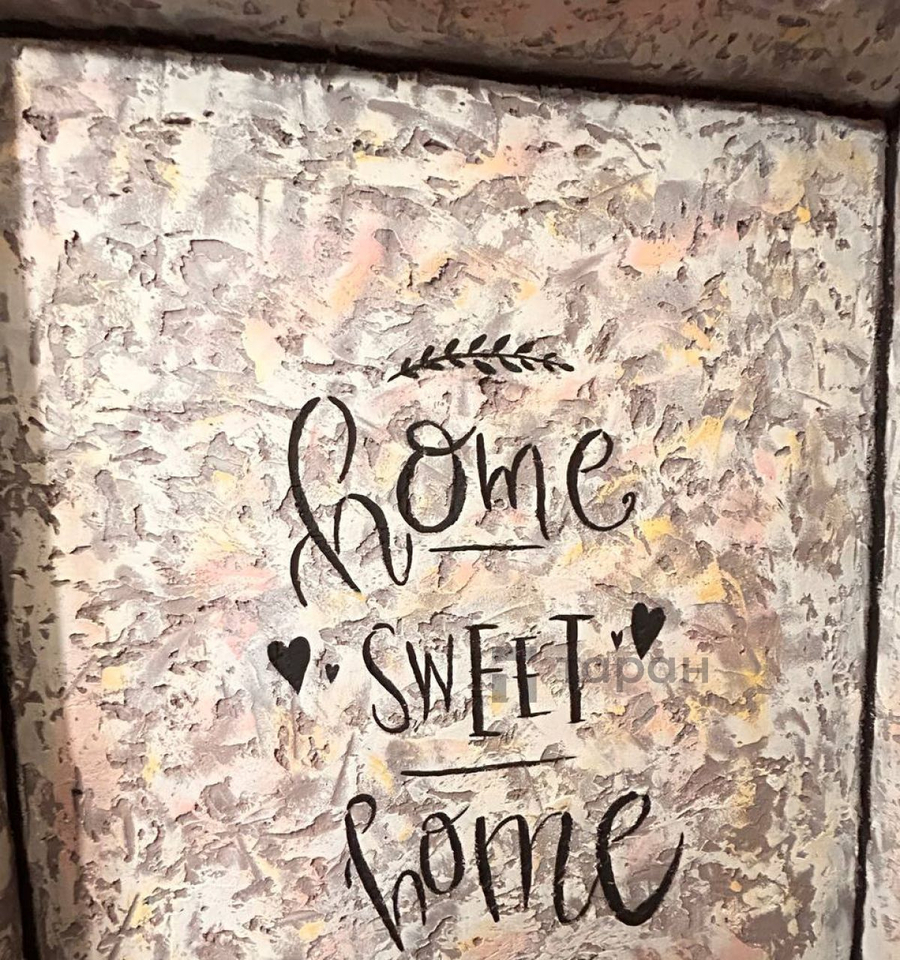 home
SWEET
таран
home